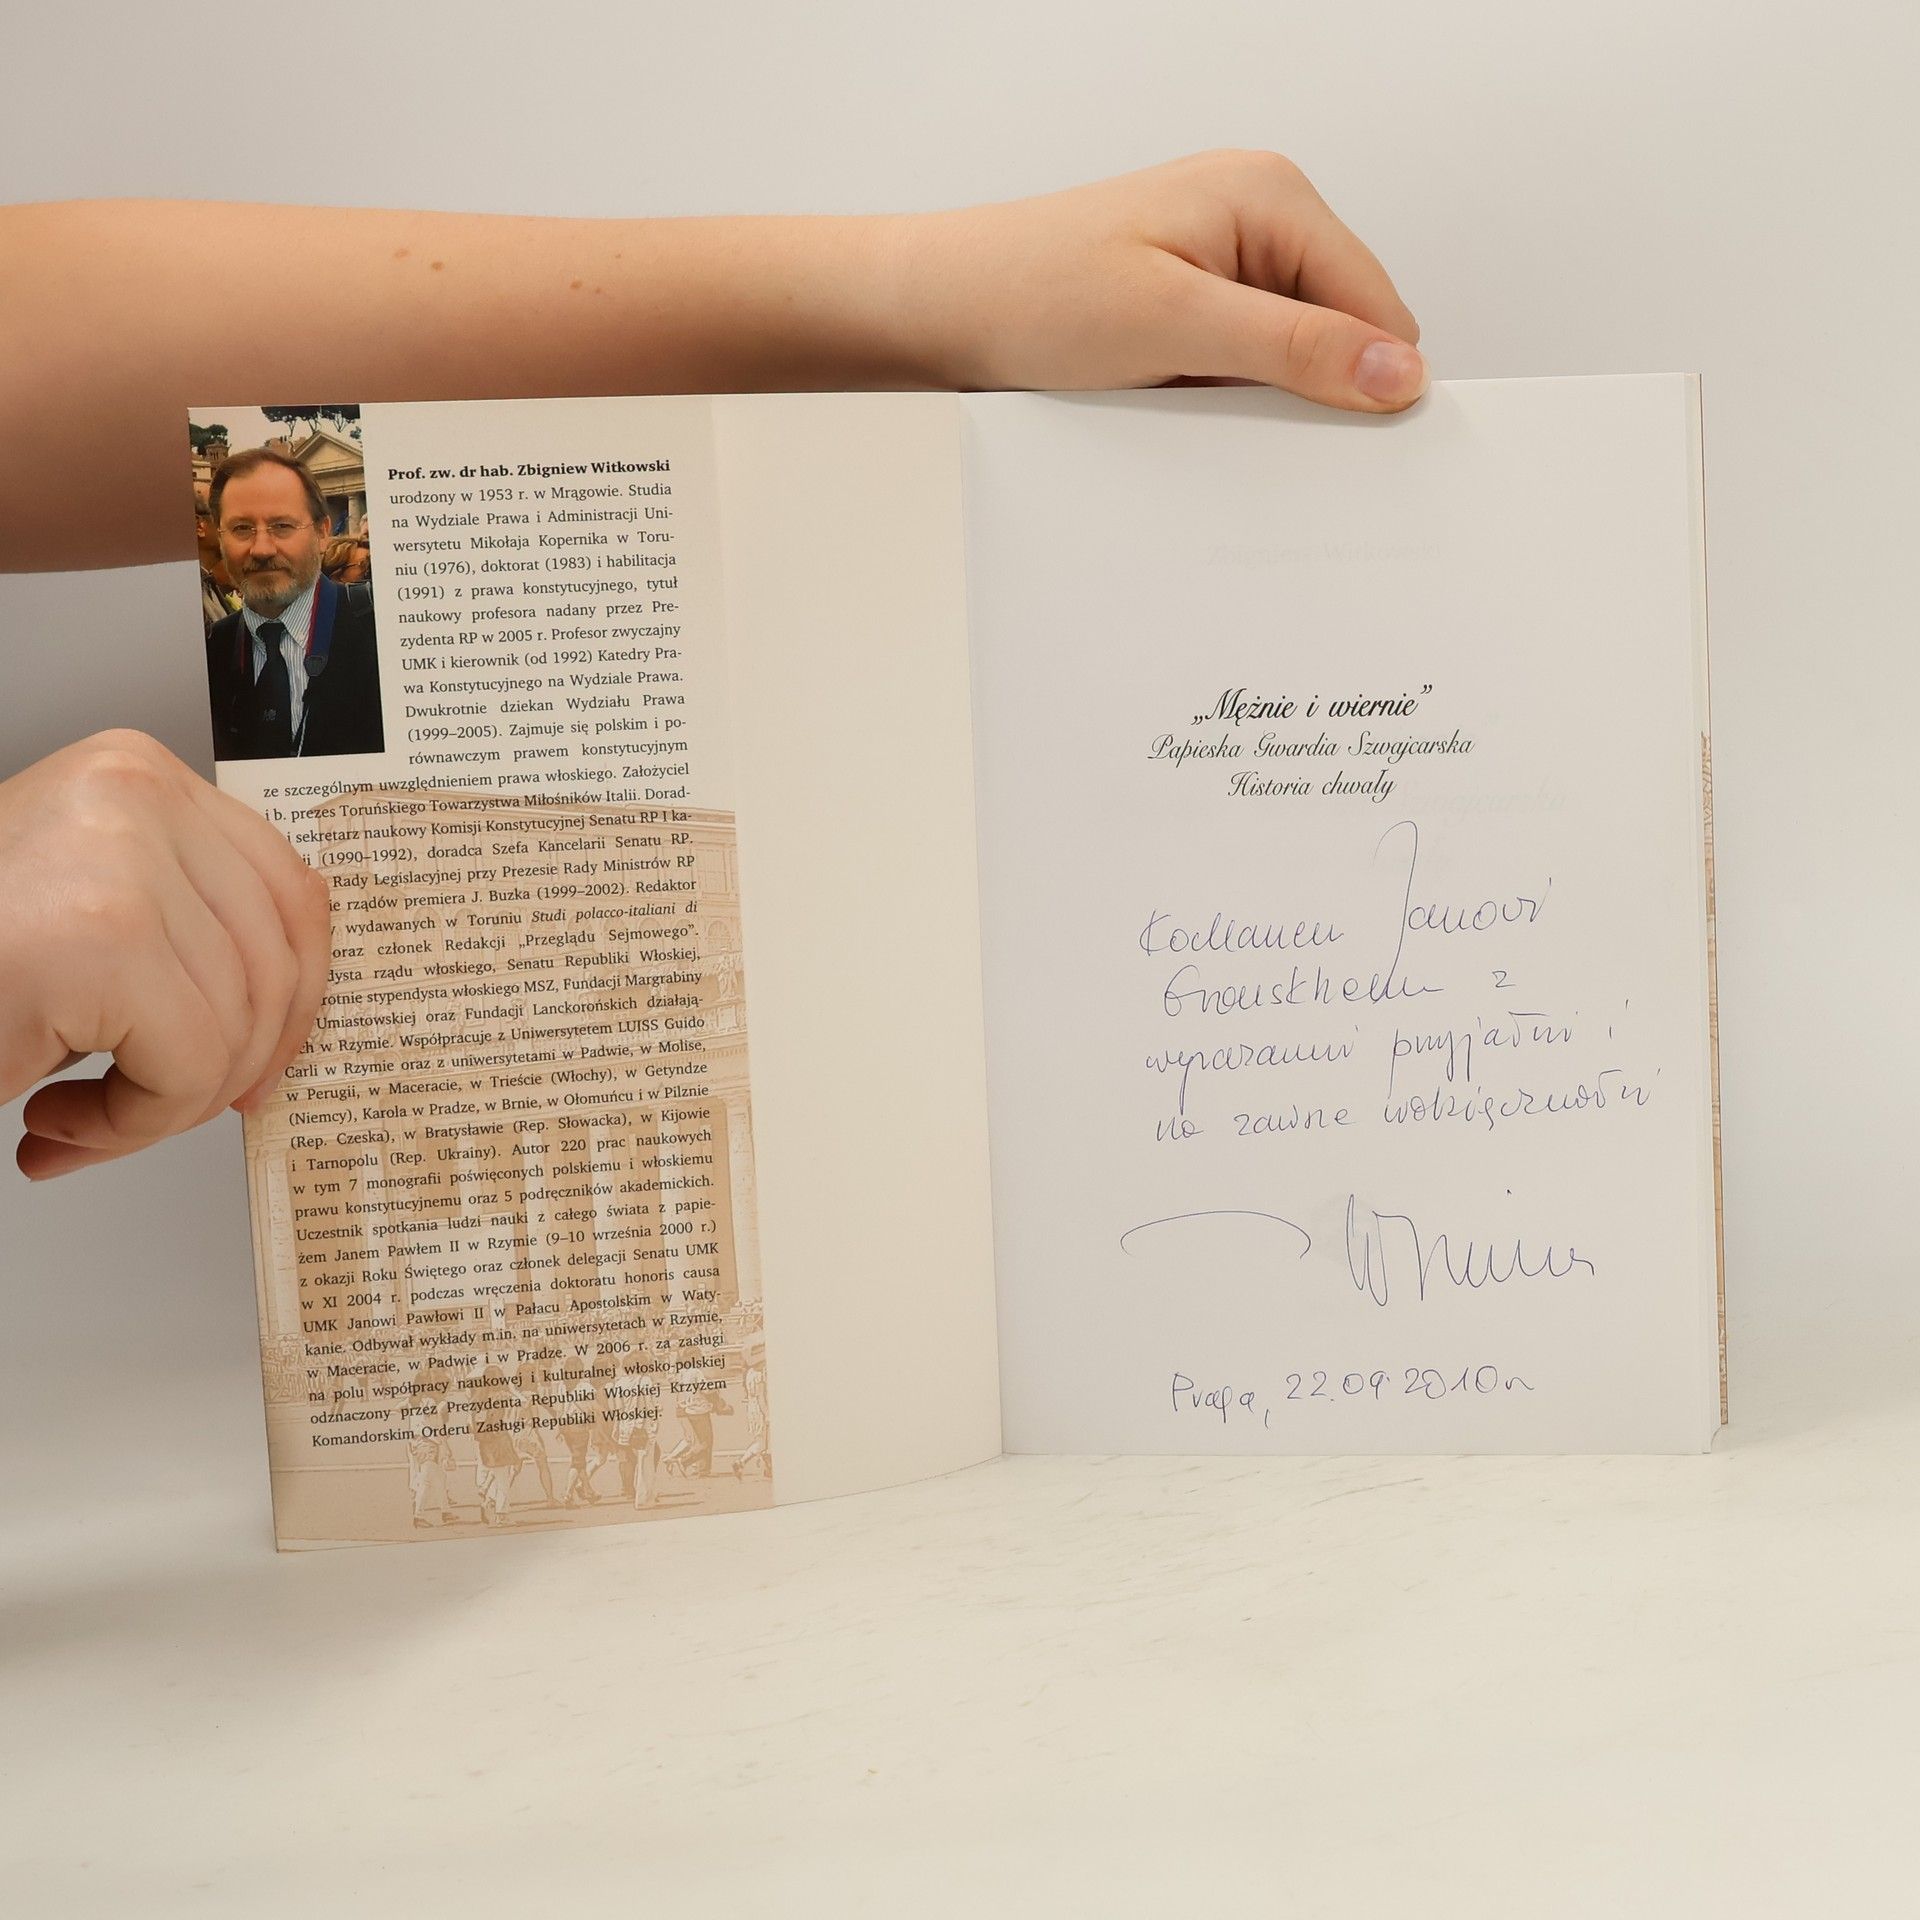 Prof. zw. dr hab. Zbigniew Witkowski
urodzony w 1953 r. w Mrągowie. Studia
na Wydziale Prawa i Administracji Uni-
wersytetu Mikołaja Kopernika w Toru-
niu (1976), doktorat (1983) i habilitacja
(1991) z prawa konstytucyjnego, tytuł
naukowy profesora nadany przez Pre-
zydenta RP w 2005 r. Profesor zwyczajny
UMK i kierownik (od 1992) Katedry Pra-
wa Konstytucyjnego na Wydziale Prawa.
Dwukrotnie dziekan Wydziału Prawa
(1999–2005). Zajmuje się polskim i po-
równawczym prawem konstytucyjnym
ze szczególnym uwzględnieniem prawa włoskiego. Założyciel
i b. prezes Toruńskiego Towarzystwa Miłośników Italii. Dorad-
i sekretarz naukowy Komisji Konstytucyjnej Senatu RP I ka-
ji (1990–1992), doradca Szefa Kancelarii Senatu RP.
Rady Legislacyjnej przy Prezesie Rady Ministrów RP
ie rządów premiera J. Buzka (1999–2002). Redaktor
wydawanych w Toruniu Studi polacco-italiani di
oraz członek Redakcji „Przeglądu Sejmowego”.
dysta rządu włoskiego, Senatu Republiki Włoskiej,
rotnie stypendysta włoskiego MSZ, Fundacji Margrabiny
Umiastowskiej oraz Fundacji Lanckorońskich działają-
ch w Rzymie. Współpracuje z Uniwersytetem LUISS Guido
Carli w Rzymie oraz z uniwersytetami w Padwie, w Molise,
w Perugii, w Maceracie, w Trieście (Włochy), w Getyndze
(Niemcy), Karola w Pradze, w Brnie, w Ołomuńcu i w Pilznie
(Rep. Czeska), w Bratysławie (Rep. Słowacka), w Kijowie
i Tarnopolu (Rep. Ukrainy). Autor 220 prac naukowych
w tym 7 monografii poświęconych polskiemu i włoskiemu
prawu konstytucyjnemu oraz 5 podręczników akademickich.
Uczestnik spotkania ludzi nauki z całego świata z papie-
żem Janem Pawłem II w Rzymie (9–10 września 2000 r.)
z okazji Roku Świętego oraz członek delegacji Senatu UMK
w XI 2004 r. podczas wręczenia doktoratu honoris causa
UMK Janowi Pawłowi II w Pałacu Apostolskim w Waty-
kanie. Odbywał wykłady m.in. na uniwersytetach w Rzymie,
w Maceracie, w Padwie i w Pradze. W 2006 r. za zasługi
na polu współpracy naukowej i kulturalnej włosko-polskiej
odznaczony przez Prezydenta Republiki Włoskiej Krzyżem
Komandorskim Orderu Zasługi Republiki Włoskiej.
„Mężnie i wiernie”
Papieska Gwardia Szwajcarska
Historia chwały
Kochanemu Janowi
z
wyrazami przyjaźni i
na zawsze wdzięczności
Praga, 22.09.2010r